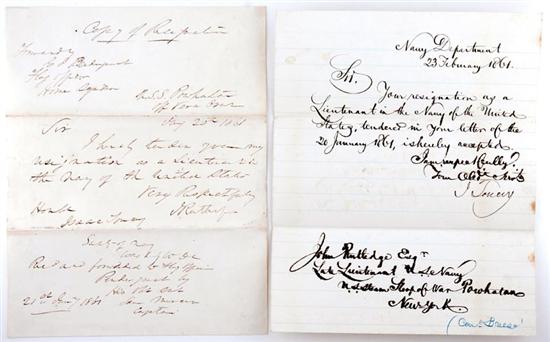 Copy of Resignation
Forward
Flag Officer
Home Squadron
U.S.S. Powhatan
Off Vera Cruz
Jany 20th 1861
Sir
I hereby tender you my
resignation as a Lieutenant in
the Navy of the United States
Very Respectfully
J Rutledge
Honble
Isaac Toucey
Secty of Navy
Recd and forwarded by
21st Jany 1861
Captain
Navy Department
23 February 1861.
Sir.
Your resignation as a
Lieutenant in the Navy of the United
States, tendered in your letter of the
20 January 1861, is hereby accepted.
I am respectfully
Your Obdt Servt
I Toucey
John Rutledge Esqr
Late Lieutenant U.S. Navy
U.S. Steam Sloop of War Powhatan
New York.